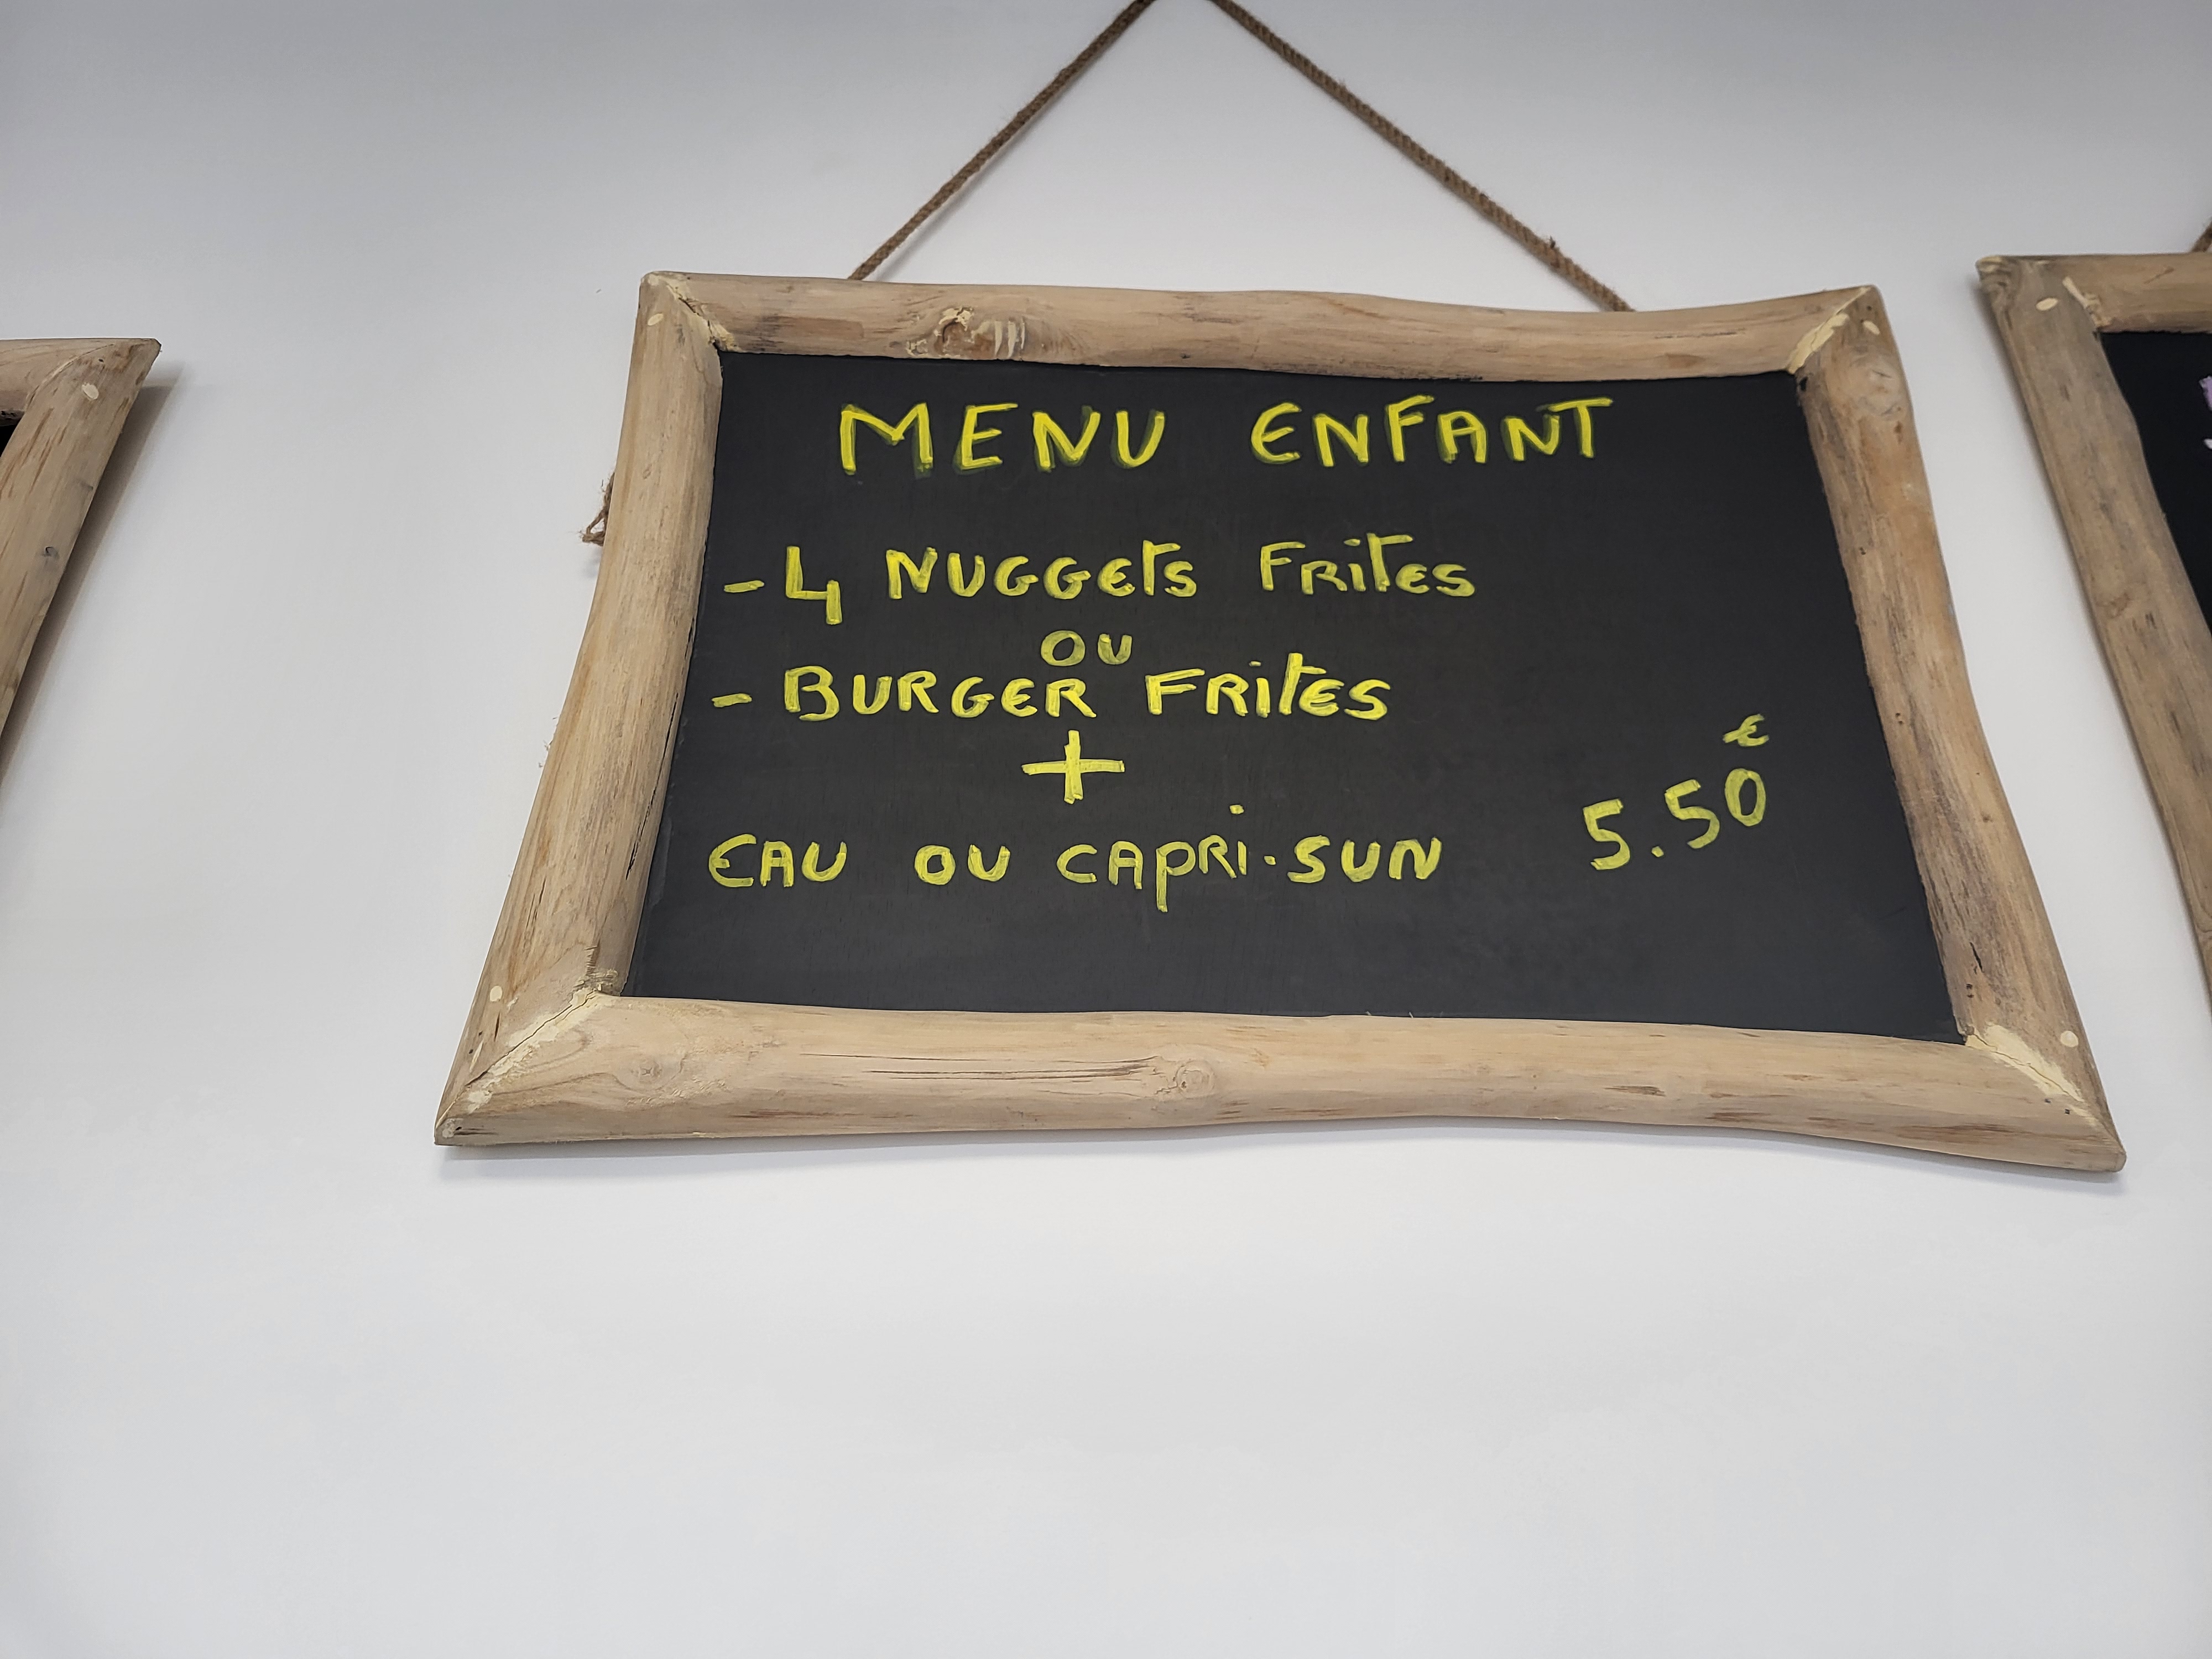 MENU ENFANT
- 4 NUGGETS FRITES
OU
- BURGER FRITES
+
EAU OU CAPRI-SUN 5.50 €